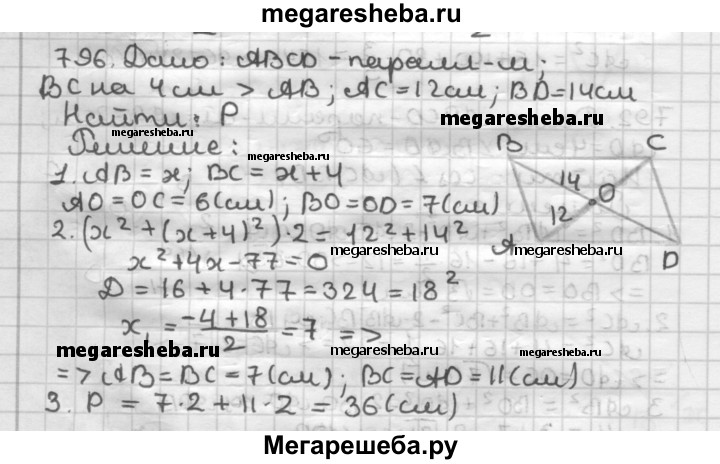 megaresheba.ru
796. Дано: ABCD - парал-м;
BC на 4 см > AB; AC = 12 см; BD = 14 см
Найти: P
megaresheba.ru
megaresheba.ru
Решение:
megaresheba.ru
1. AB = x; BC = x + 4
AO = OC = 6 (см); BO = OD = 7 (см)
B
C
14
O
12
A
D
2. (x² + (x + 4)²) · 2 = 12² + 14²
megaresheba.ru
megaresheba.ru
x² + 4x - 77 = 0
D = 16 + 4 · 77 = 324 = 18²
x₁ = (-4 + 18)/2 = 7 =>
megaresheba.ru
megaresheba.ru
=> AB = BC = 7 (см); BC = AD = 11 (см)
3. P = 7 · 2 + 11 · 2 = 36 (см)
Мегарешеба.ру